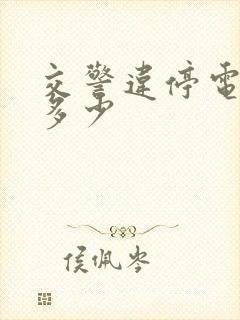 交警違停電
多少
侯佩岑